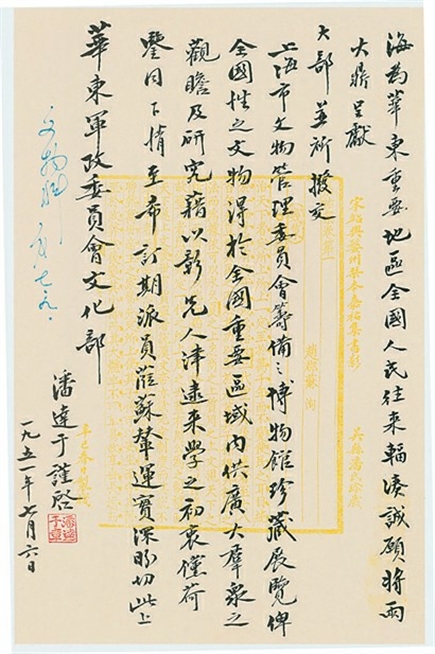 海為華東重要地區全國人民往来輻湊誠願将兩
大鼎呈獻
大部並祈撥交
上海市文物管理委員會籌備之博物館珍藏展覽俾
全國性之文物得於全國重要區域内供廣大羣衆之
觀瞻及研究藉以彰先人津逮来學之初衷儻荷
鑒同下情至希訂期派員蒞蘇輦運實深盼切此上
華東軍政委員會文化部
潘達于謹啓
一九五一年七月六日
潘達于章
文物
吳縣潘氏珍藏
趙郡蘇洵